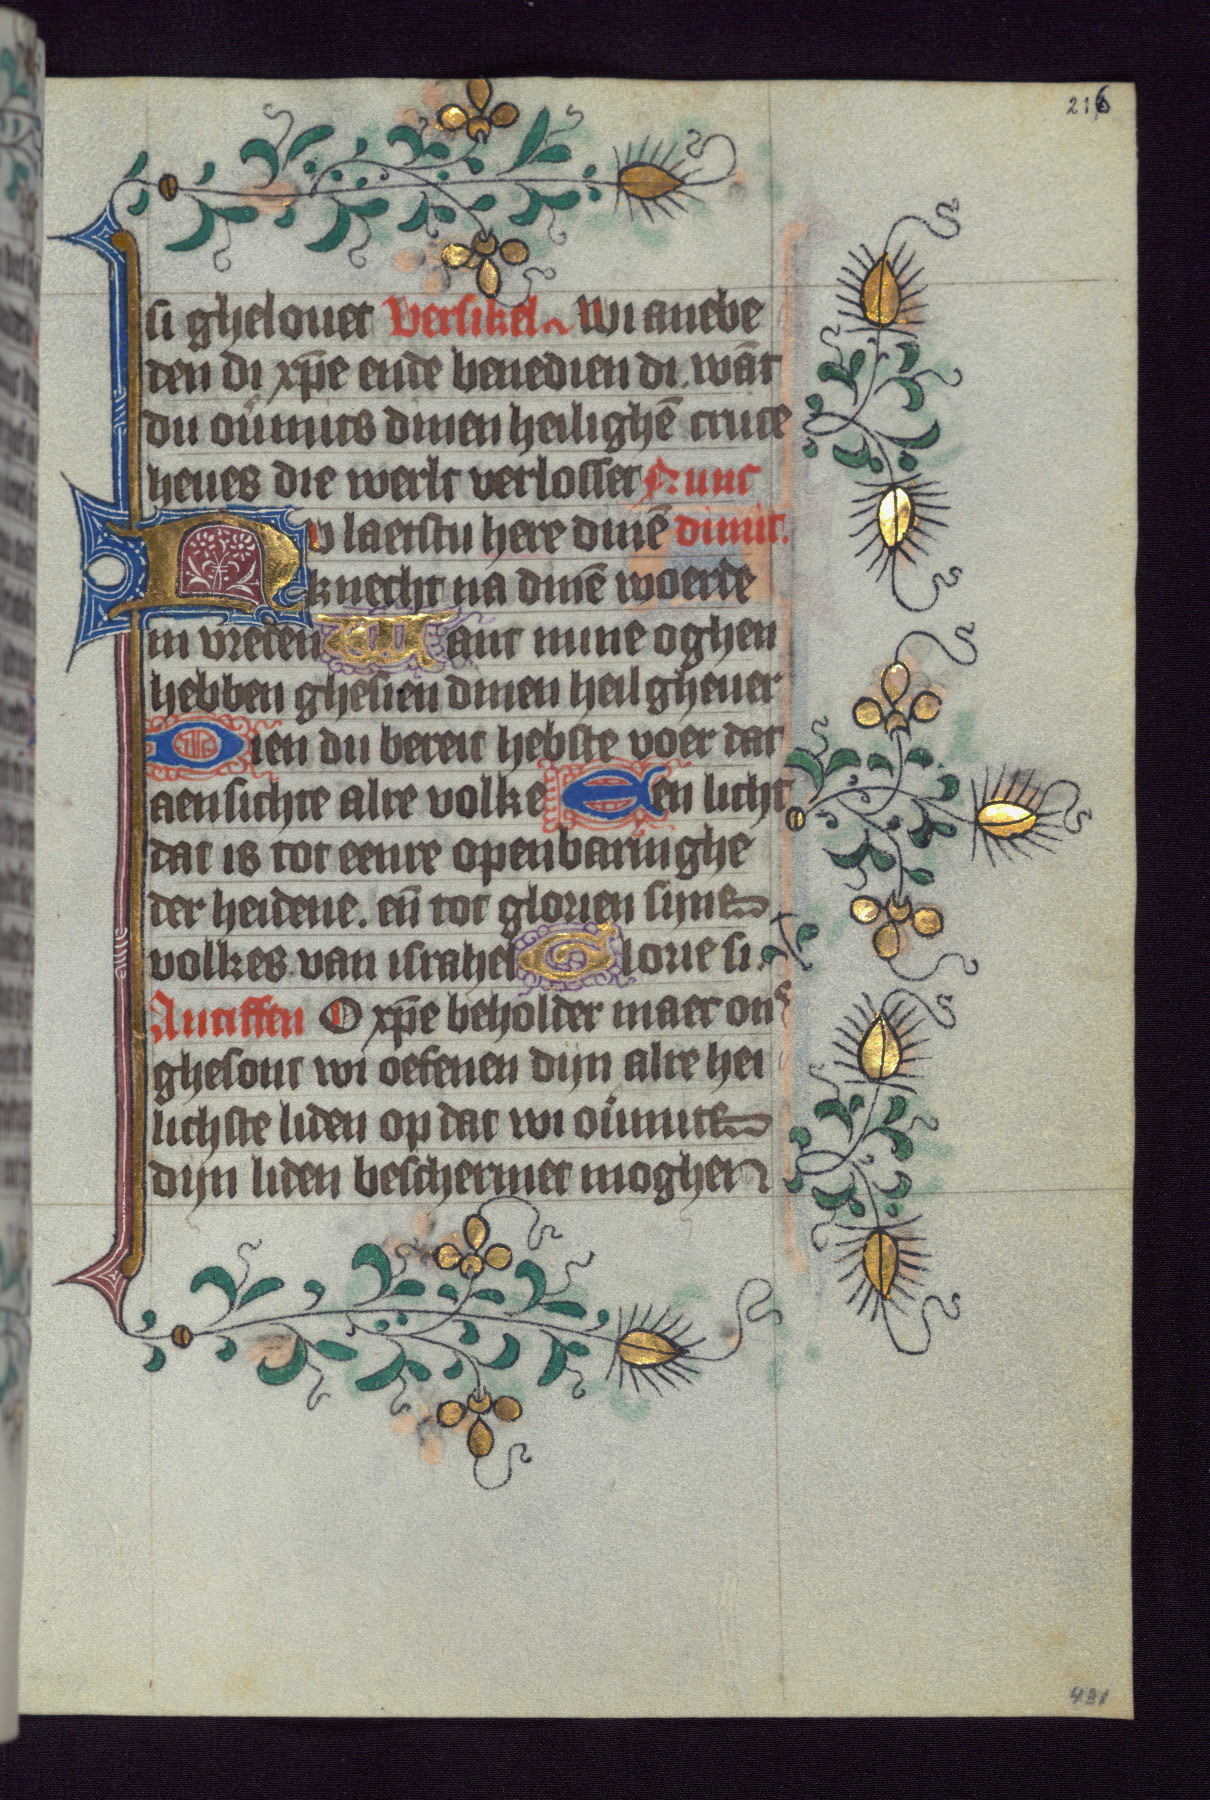 216
si ghelouet Versikel Wi anebe
den di xp̄e ende benedien di. wāt
du ou̇mits dinen heilighē cruce
heues die werlt verlosset Nunc
Nv laetstu here dinē dimit.
knecht na dinē woerde
in vreden Want mine oghen
hebben ghesien dinen heil gheuer
Dien du bereit hebste voer dat
aensichte alre volke Een licht
dat is tot eenre openbaringhe
der heidene. eñ tot glorien sijne
volkes van israhel Glorie si.
Antiffen O xp̄e beholder maer ons
ghesont wi oefenen dijn alre hei
lichste liden op dat wi ou̇mits
dijn liden beschermet moghen
431